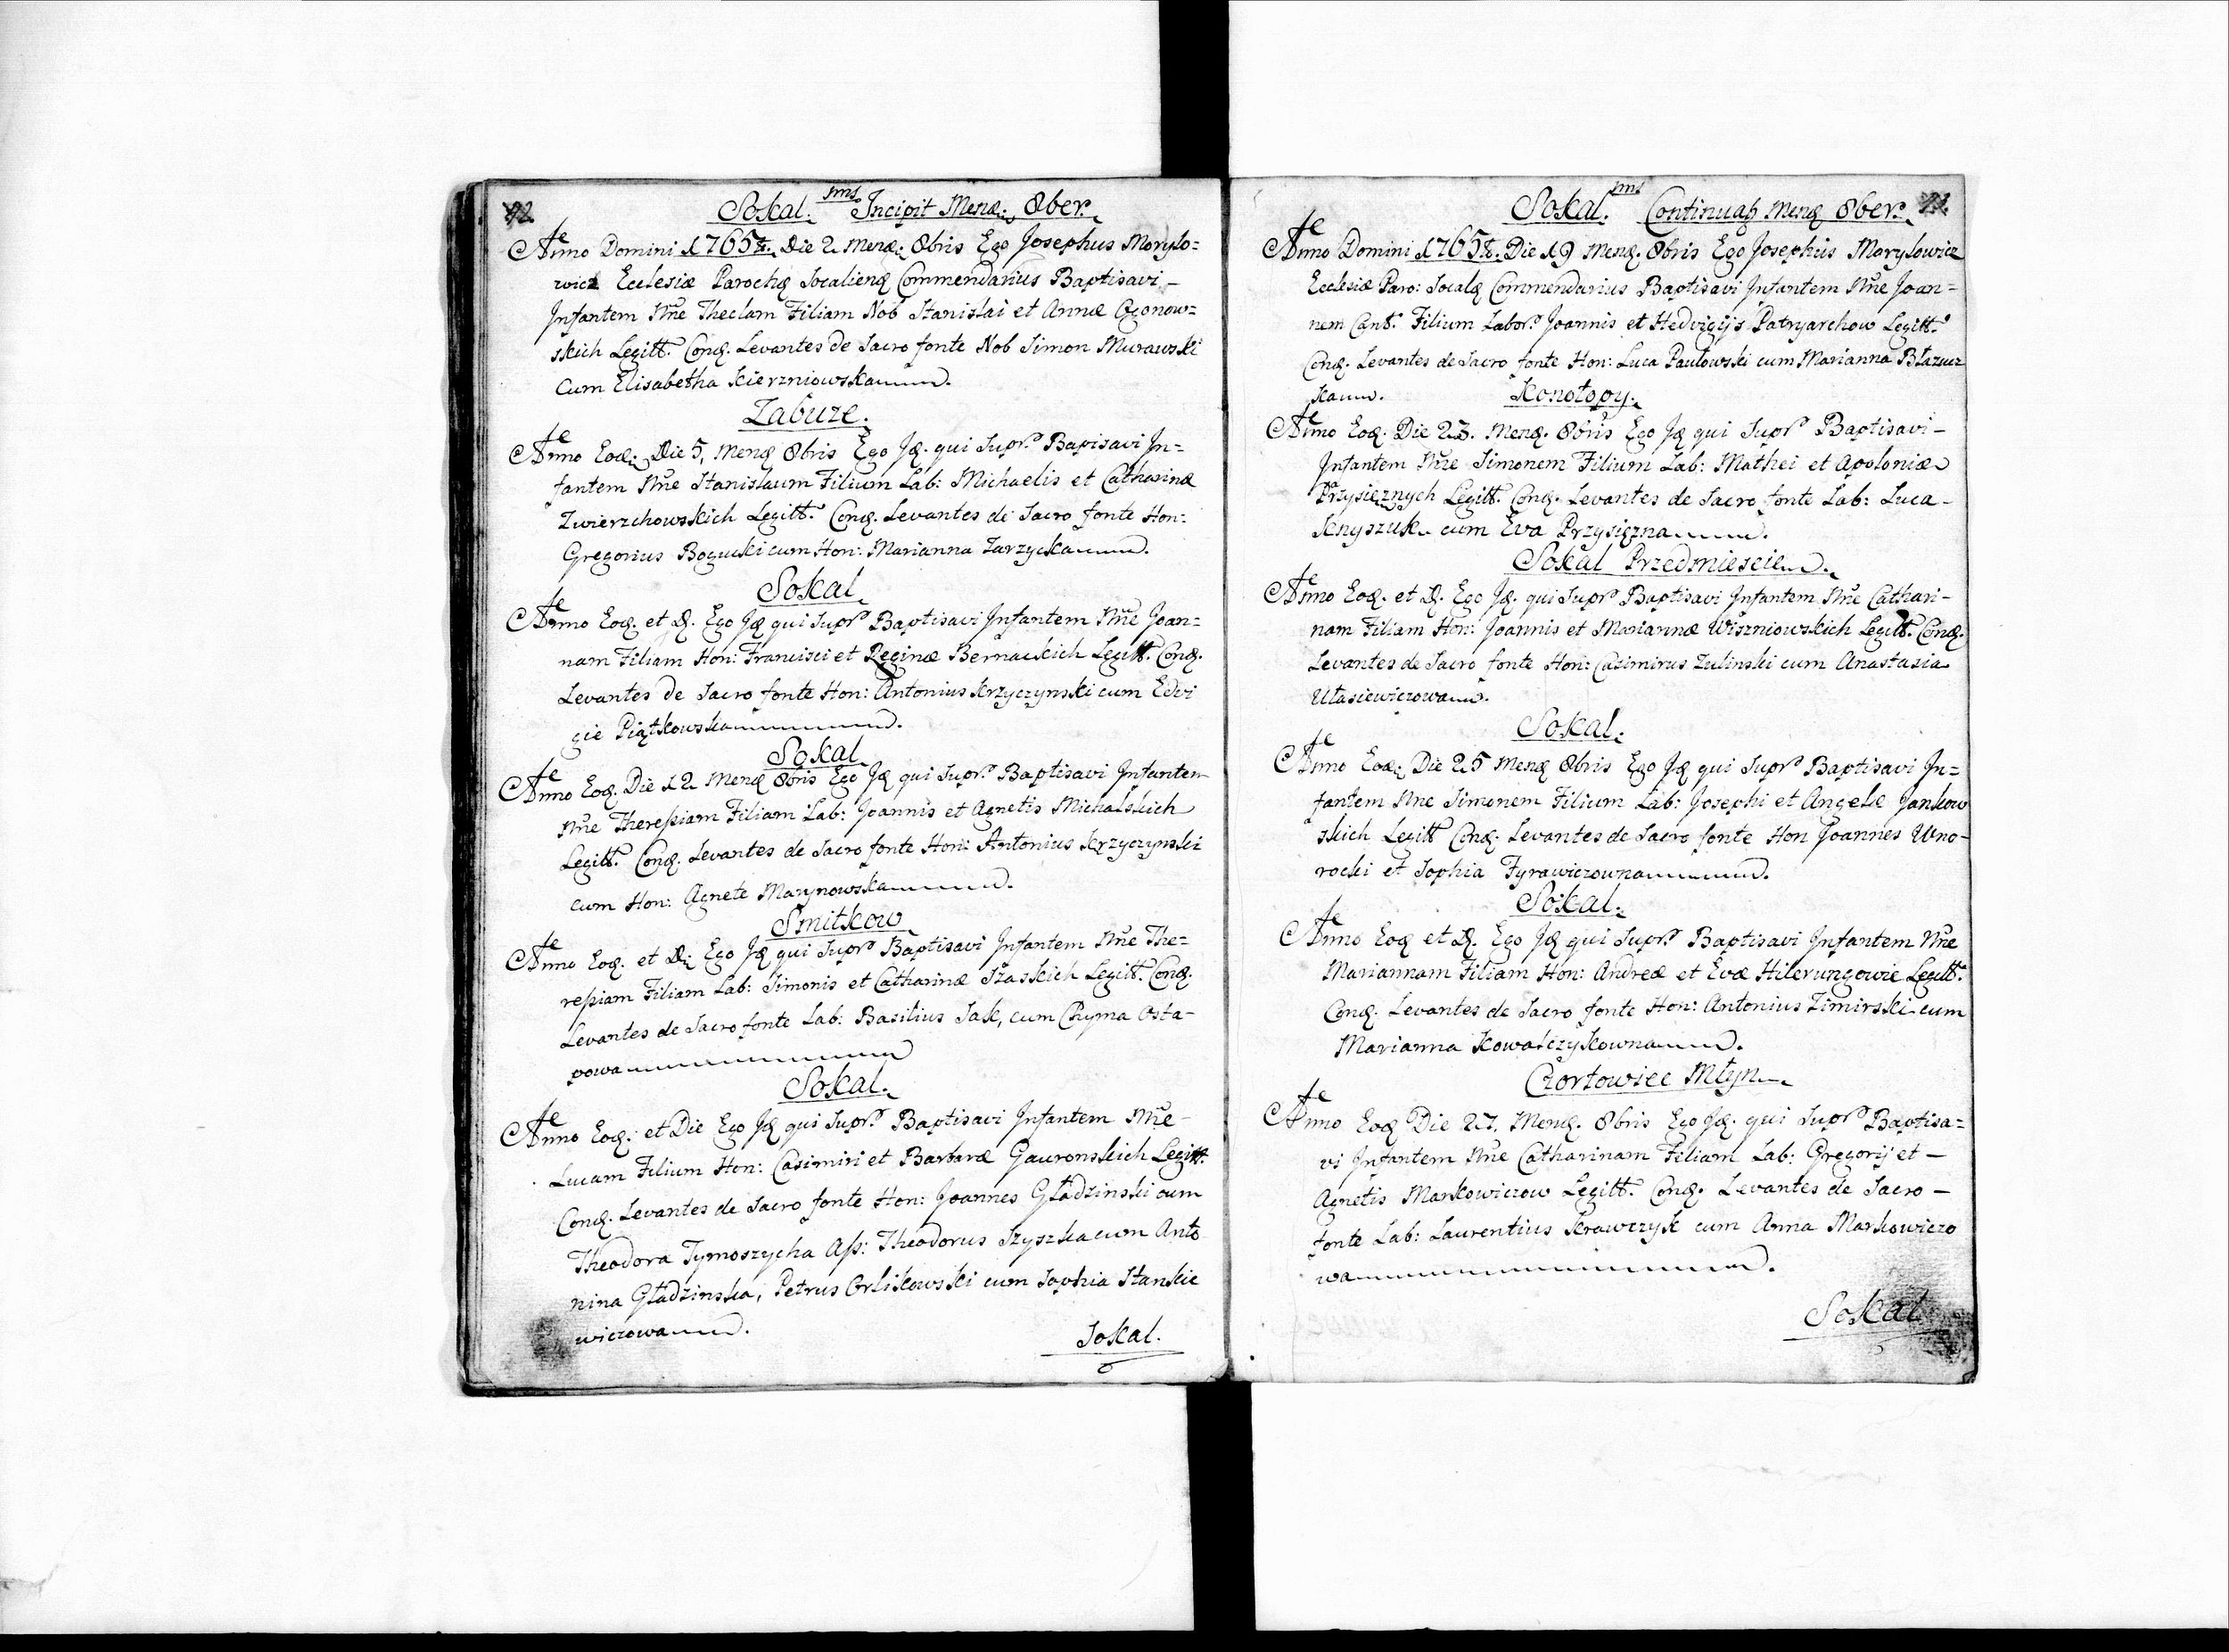 92 Sokal. sms Incipit Mensę: 8ber.
Anno Domini 1765to. Die 2 Mensę: 8bris Ego Josephus Morylo=
wicz Ecclesiæ Parochę Socaliensę Commendarius Baptisavi –
Infantem Nñe Theclam Filiam Nob Stanislai et Annæ Ogonow=
skich Legitt. Conę. Levantes de Sacro fonte Nob Simon Murawski
Cum Elisabetha Kierzniowska.
Zabuze.
Anno Eoę. Die 5, Mensę 8bris Ego Ię. qui Supra Bapisavi In=
fantem Nñe Stanislaum Filium Lab: Michaelis et Catharinæ
Zwierzchowskich Legitt. Conę. Levantes de Sacro fonte Hon:
Gregorius Bogucki cum Hon: Marianna Zarzycka.
Sokal
Anno Eoę. et D. Ego Ię qui Supra Baptisavi Infantem Nñe Joan=
nam Filiam Hon: Francisci et Reginæ Bernackich Legitt. Conę.
Levantes de Sacro fonte Hon: Antonius Krzyczynski cum Edvi
gie Piątkowska.
Sokal
Anno Eoę. Die 12 Mensę 8bris Ego Ię qui Supra Baptisavi Infantem
Nñe Theressiam Filiam Lab: Joannis et Agnetis Michalskich
Legitt. Conę. Levantes de Sacro fonte Hon: Antonius Krzyczynski
cum Hon: Agnete Marynowska.
Smitkow
Anno Eoę. et D: Ego Ię qui Supra Baptisavi Infantem Nñe The=
ressiam Filiam Lab: Simonis et Catharinæ Szaskich Legitt. Conę.
Levantes de Sacro fonte Lab: Basilius Sak, cum Chyma Osta-
powa
Sokal.
Anno Eoę. et Die Ego Ię qui Supra Baptisavi Infantem Nñe –
Lucam Filium Hon: Casimiri et Barbaræ Gauronskich Legitt.
Conę. Levantes de Sacro fonte Hon: Joannes Gładzinski cum
Theodora Tymoszycha Ass: Theodorus Szyszka cum Anto
nina Gładzinska, Petrus Orlikowski cum Sophia Stankie
wiczowa.
Sokal.
Sokal. sms Continuaß Mensę 8ber.
Anno Domini 1765to. Die 19 Mensę. 8bris Ego Josephus Morylowicz
Ecclesiæ Paro: Socalę Commendarius Baptisavi Infantem Nñe Joan=
nem Cant. Filium Labor. Joannis et Hedvigijs Patryarchow Legitt.
Conę. Levantes de Sacro fonte Hon: Luca Pawłowski cum Marianna Błazur
ka.
Konotopy.
Anno Eoę. Die 23. Mensę. 8bris Ego Ię qui Supra Baptisavi –
Infantem Nñe Simonem Filium Lab: Mathei et Apoloniæ
Przysięznych Legitt. Conę. Levantes de Sacro fonte Lab: Luca –
Knyszuk cum Eva Przysięzna.
Sokal Przedmiescie.
Anno Eoę. et D. Ego Ię. qui Supra Baptisavi Infantem Nñe Cathari-
nam Filiam Hon: Joannis et Mariannæ Wiszniowskich Legitt. Conę.
Levantes de Sacro fonte Hon: Casimirus Zulinski cum Anastasia
Ułasiewiczowa.
Sokal.
Anno Eoę. Die 25 Mensę 8bris Ego Ię qui Supra Baptisavi In=
fantem Nñe Simonem Filium Lab: Josephi et Angelæ Jankow
skich Legitt Conę. Levantes de Sacro fonte Hon Joannes Uno-
rocki et Sophia Tyrawiczowna.
Sokal.
Anno Eoę et D. Ego Ię qui Supra Baptisavi Infantem Nñe
Mariannam Filiam Hon: Andreæ et Evæ Hilerungowie Legitt.
Conę. Levantes de Sacro fonte Hon: Antonius Zimirski cum
Marianna Kowalczykowna.
Czortowiec Młyn
Anno Eoę Die 27, Mensę. 8bris Ego Ię. qui Supra Baptisa=
vi Infantem Nñe Catharinam Filiam Lab: Gregorij et –
Agnetis Markowiczow Legitt. Conę. Levantes de Sacro –
fonte Lab: Laurentius Krawczyk cum Anna Markowiczo
wa.
Sokal